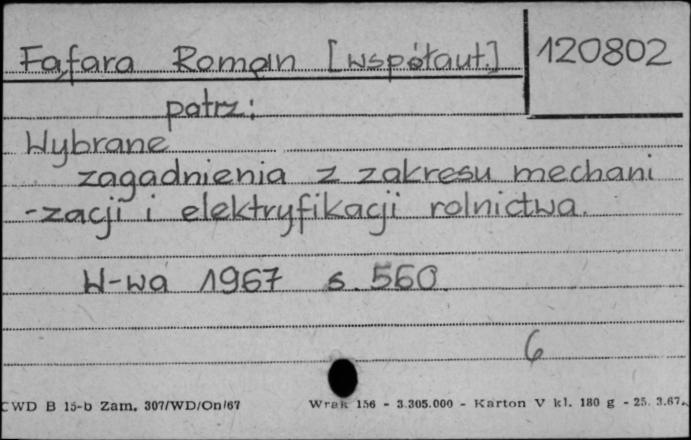 Fąfara Roman [współaut.] 120802
patrz:
Wybrane
zagadnienia z zakresu mechani
-zacji i elektryfikacji rolnictwa.
W-wa 1967 s. 560.
6
CWD B 15-b Zam. 307/WD/On/67 Wrak 156 - 3.305.000 - Karton V kl. 180 g - 25. 3.67.